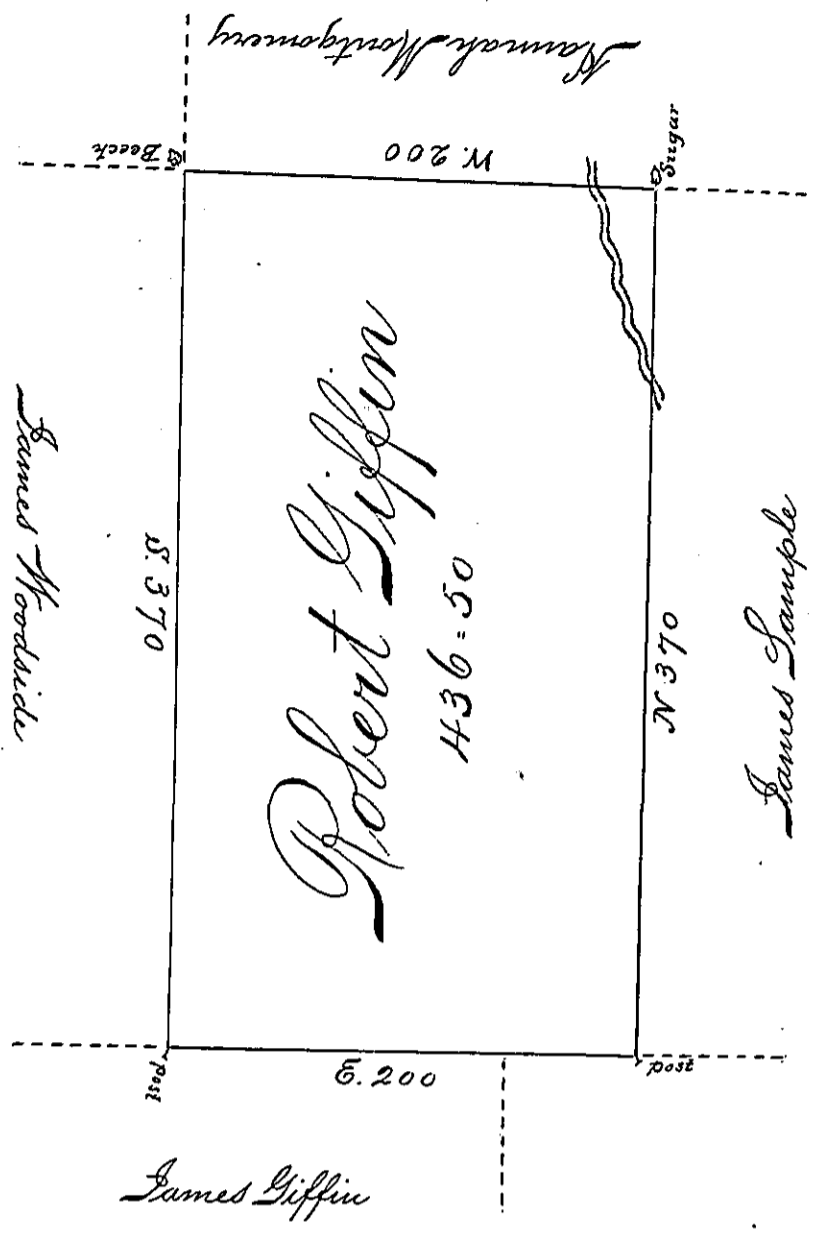 Hannah Montgomery
Sugar
Beech
W. 200
James Woodside
S. 370
Robert Giffin
436=50
N 370
James Sample
Post
E. 200
post
James Giffin